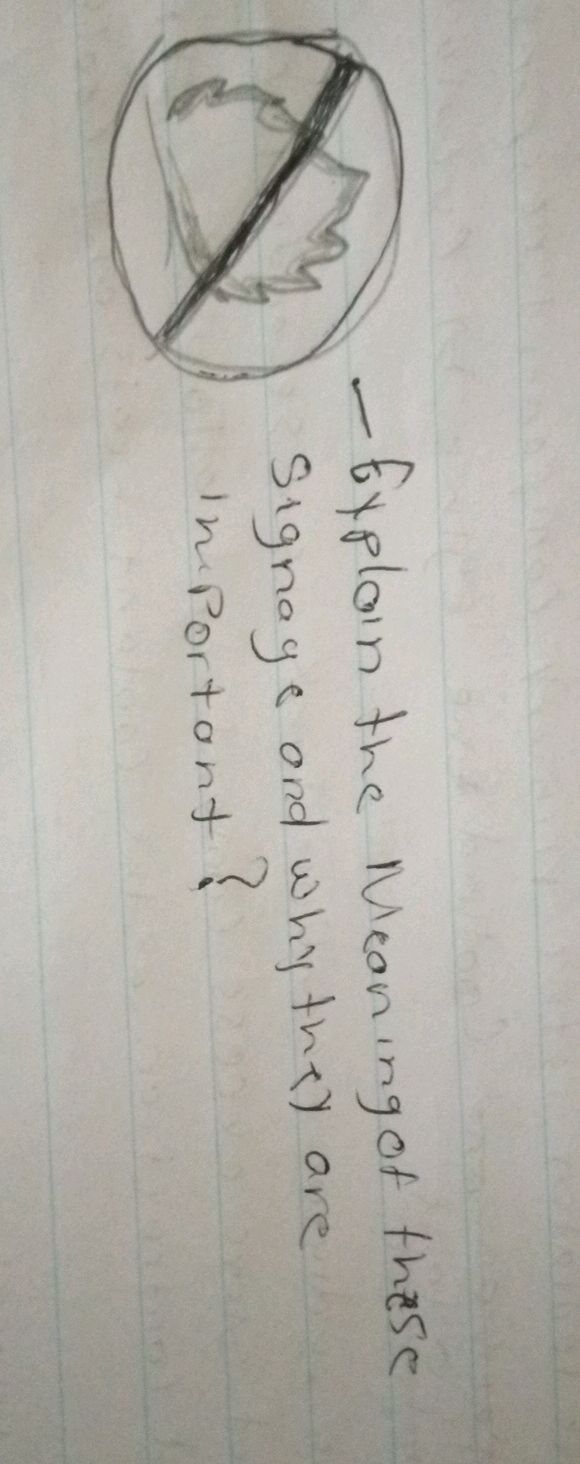 - Explain the Meaning of these
signage and why they are
inportant?